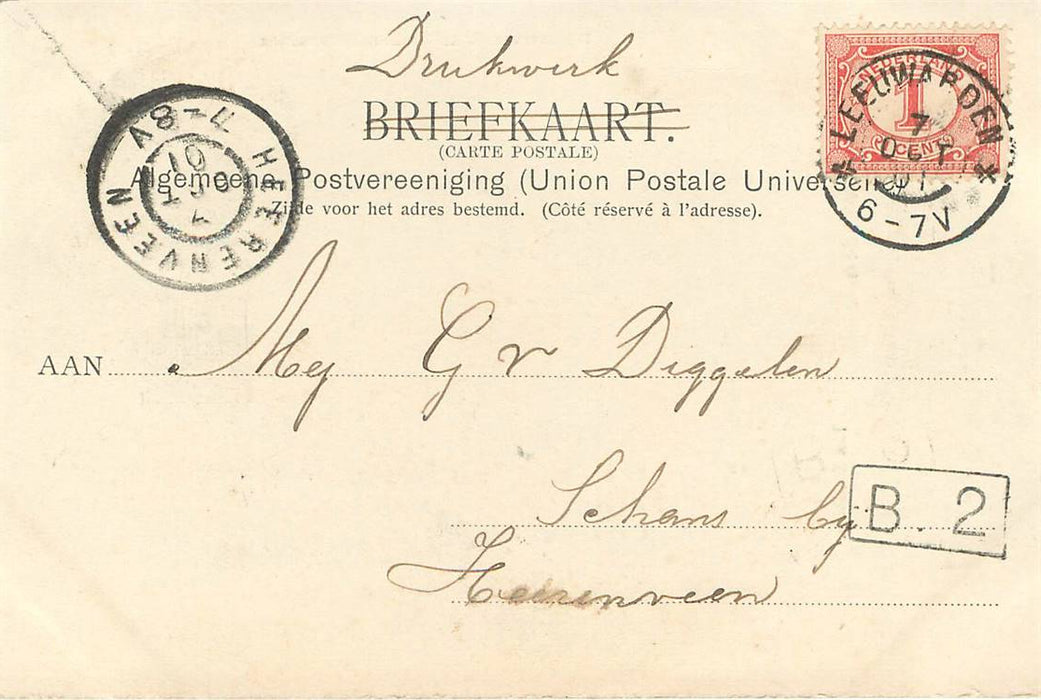 Drukwerk
BRIEFKAART.
(CARTE POSTALE)
Algemeene Postvereeniging (Union Postale Universel
Zijde voor het adres bestemd. (Côté réservé à l'adresse).
NEDERLAND
1
CENT
LEEUWARDEN
7
OCT
01
6-7V
HEERENVEEN
7-8V
7
OCT
01
AAN Mej G v Diggelen
Schans by
Heerenveen
B. 2